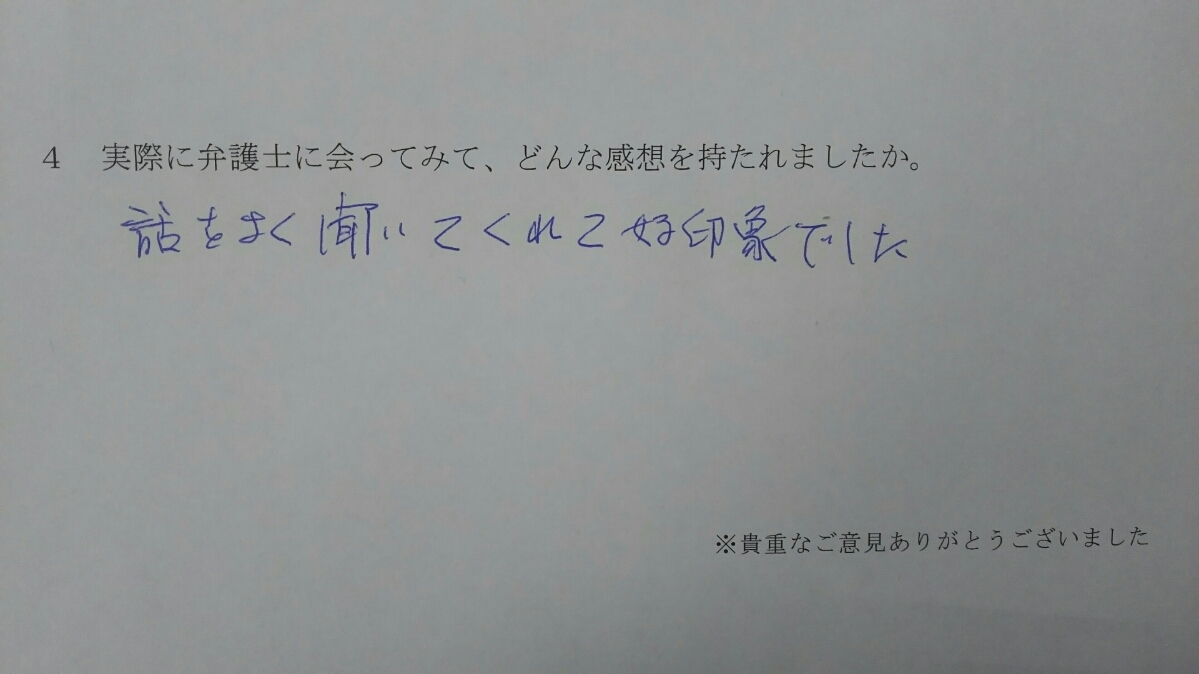 4 実際に弁護士に会ってみて、どんな感想を持たれましたか。
話をよく聞いてくれて好印象でした
※貴重なご意見ありがとうございました